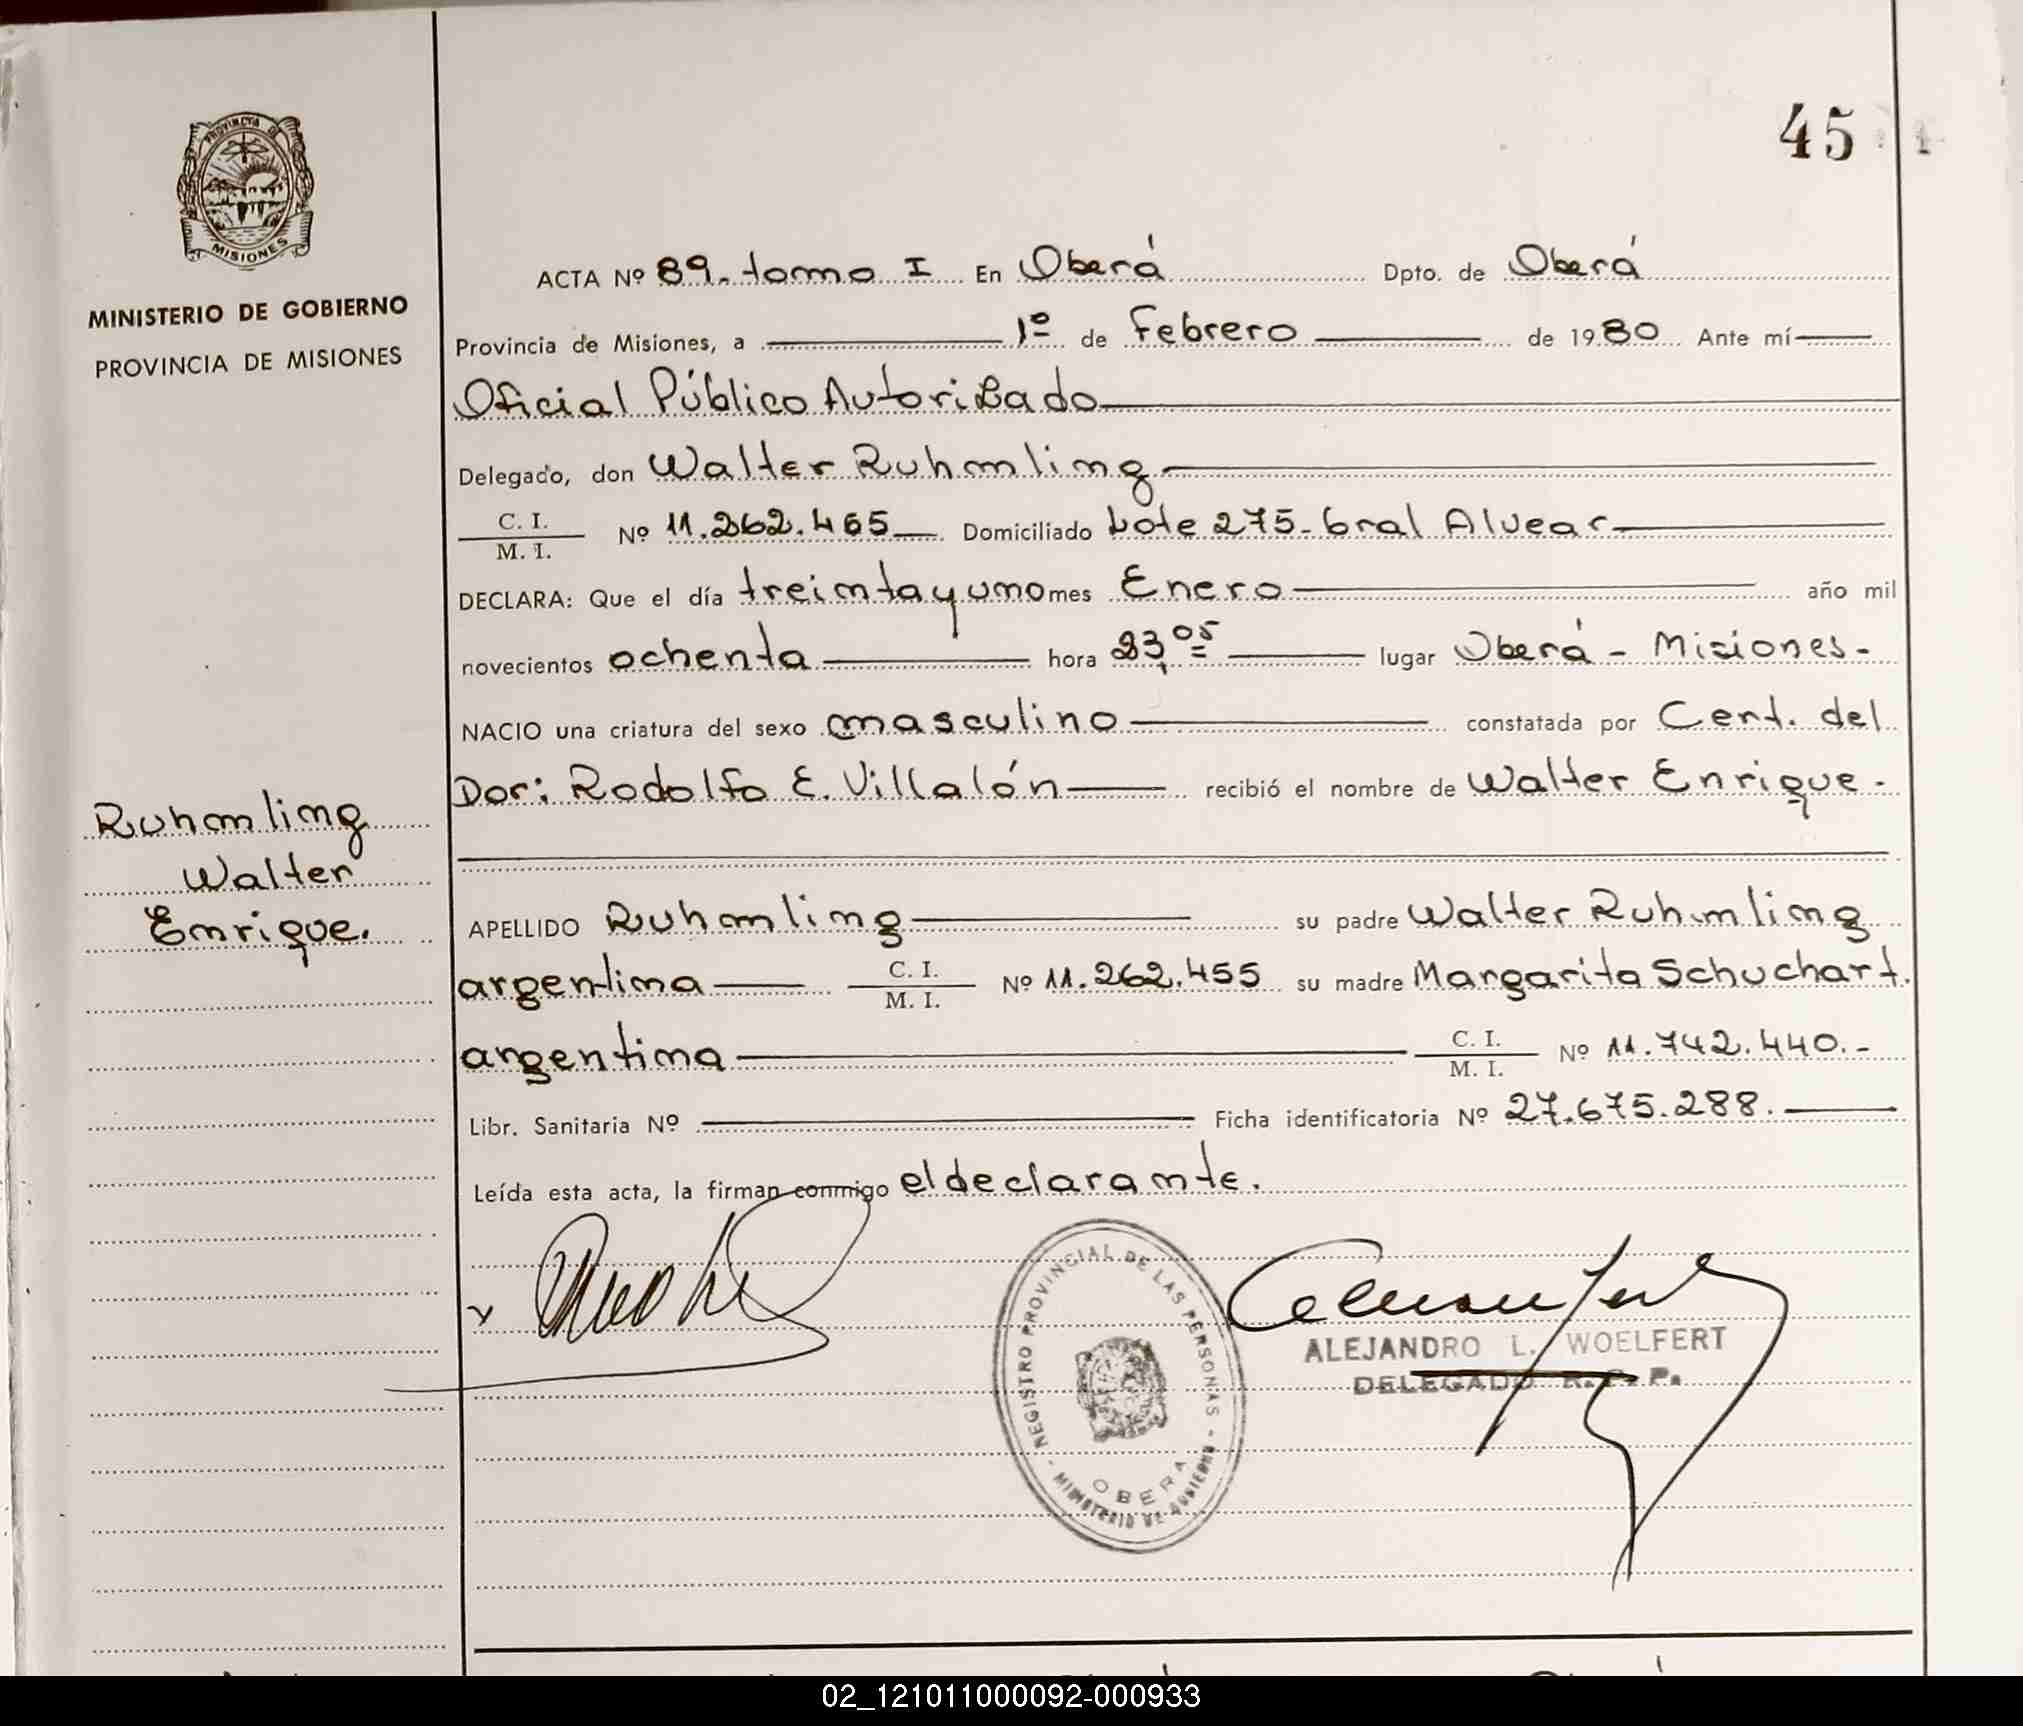 PROVINCIA DE
MISIONES
MINISTERIO DE GOBIERNO
PROVINCIA DE MISIONES
45
ACTA Nº 89. tomo I En Oberá Dpto. de Oberá
Provincia de Misiones, a 1º de Febrero de 1980 Ante mí
Oficial Público Autorizado
Delegado, don Walter Ruhmling
C. I.
M. I. Nº 11.262.455 Domiciliado Lote 275-Gral Alvear
DECLARA: Que el día treintayuno mes Enero año mil
novecientos ochenta hora 23,05 lugar Oberá - Misiones-
NACIO una criatura del sexo masculino constatada por Cent. del
Dor: Rodolfo E. Villalón recibió el nombre de Walter Enrique-
Ruhmling
Walter
Enrique.
APELLIDO Ruhmling su padre Walter Ruhmling
argentina C. I.
M. I. Nº 11.262.455 su madre Margarita Schuchart.
argentina C. I.
M. I. Nº 11.742.440.-
Libr. Sanitaria Nº Ficha identificatoria Nº 27.675.288.
Leída esta acta, la firman conmigo el declarante.
REGISTRO PROVINCIAL DE LAS PERSONAS
- MINISTERIO DE GOBIERNO -
OBERA
ALEJANDRO L. WOELFERT
DELEGADO R. P. P.
02_121011000092-000933